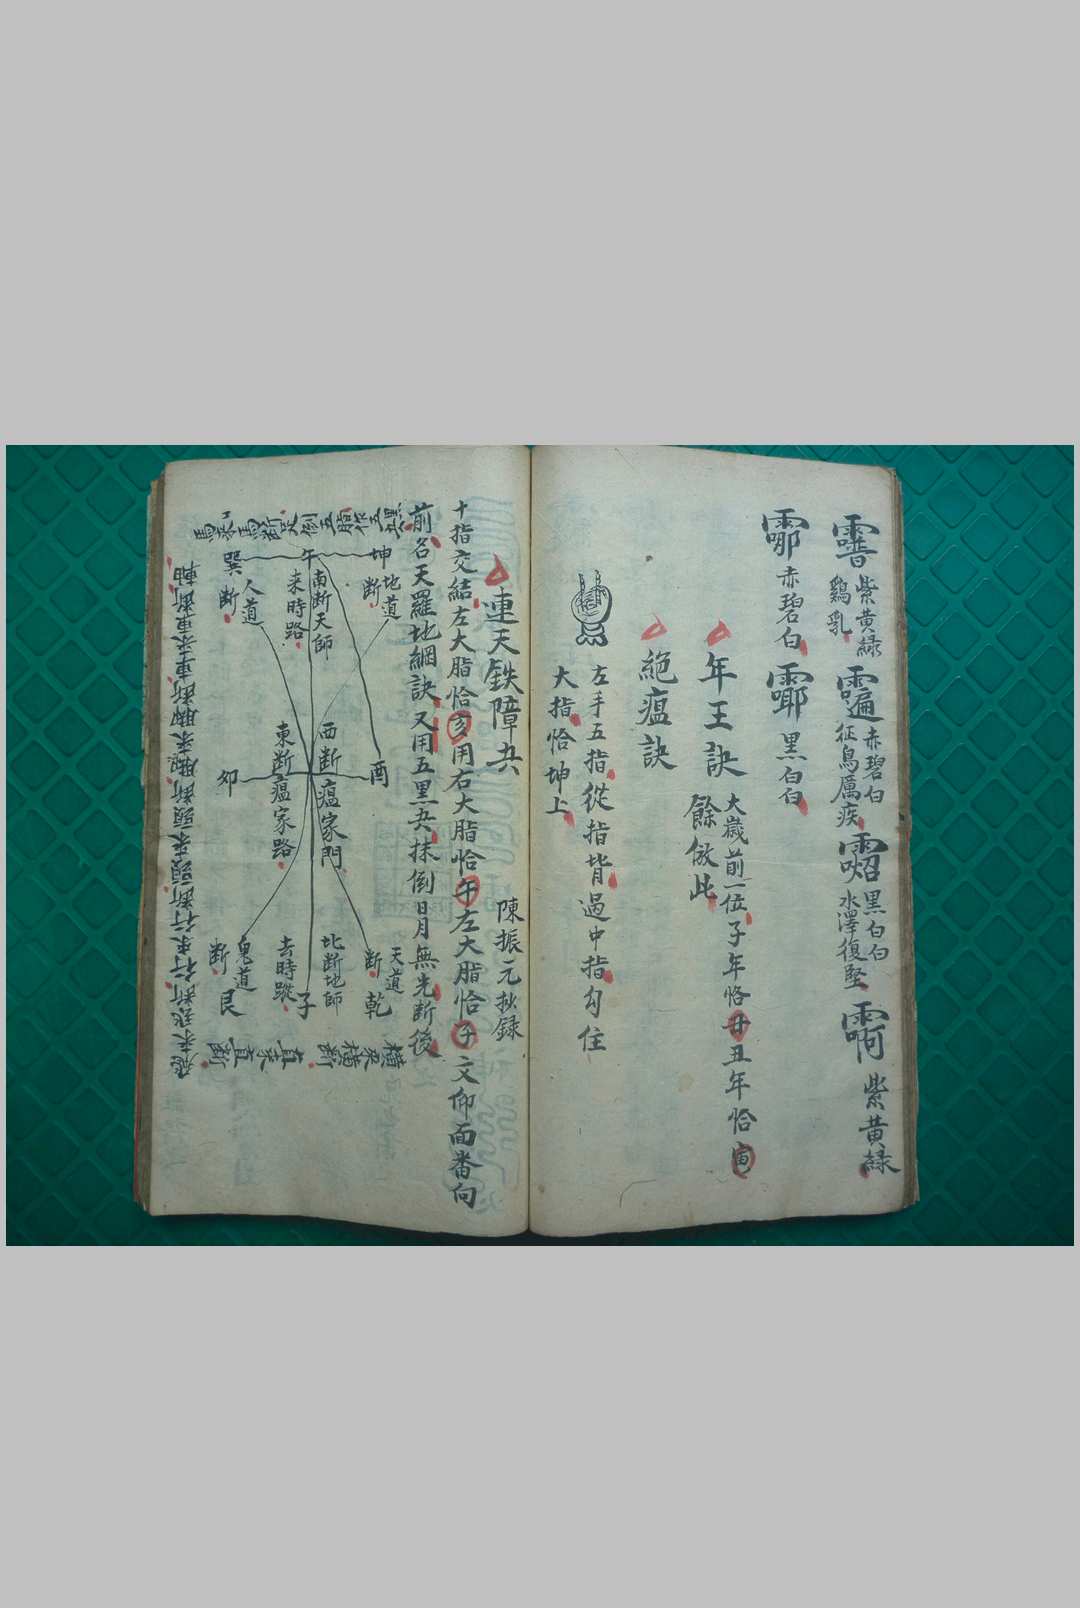 紫黄緑
鷄乳
赤碧白
征鳥厲疾
黒白白
水澤復堅
紫黄緑
赤碧白
黒白白
年王訣
大嵗前一位子年恪丑丑年恰寅
餘倣此
絶瘟訣
左手五指從指背過中指勾住
大指恰坤上
連天鉄障共
陳振元抄録
十指交結左大脂恰亥用右大脂恰午左大脂恰子文仰面番向
前名天羅地網訣又用五黒共抹倒日月無光断後
坤
地道
断
午
南断天師
来時路
巽
人道
断
酉
西断瘟家門
東断瘟家路
卯
乾
天道
断
子
北断地師
去時蹤
艮
鬼道
断
横来横断
直来直断